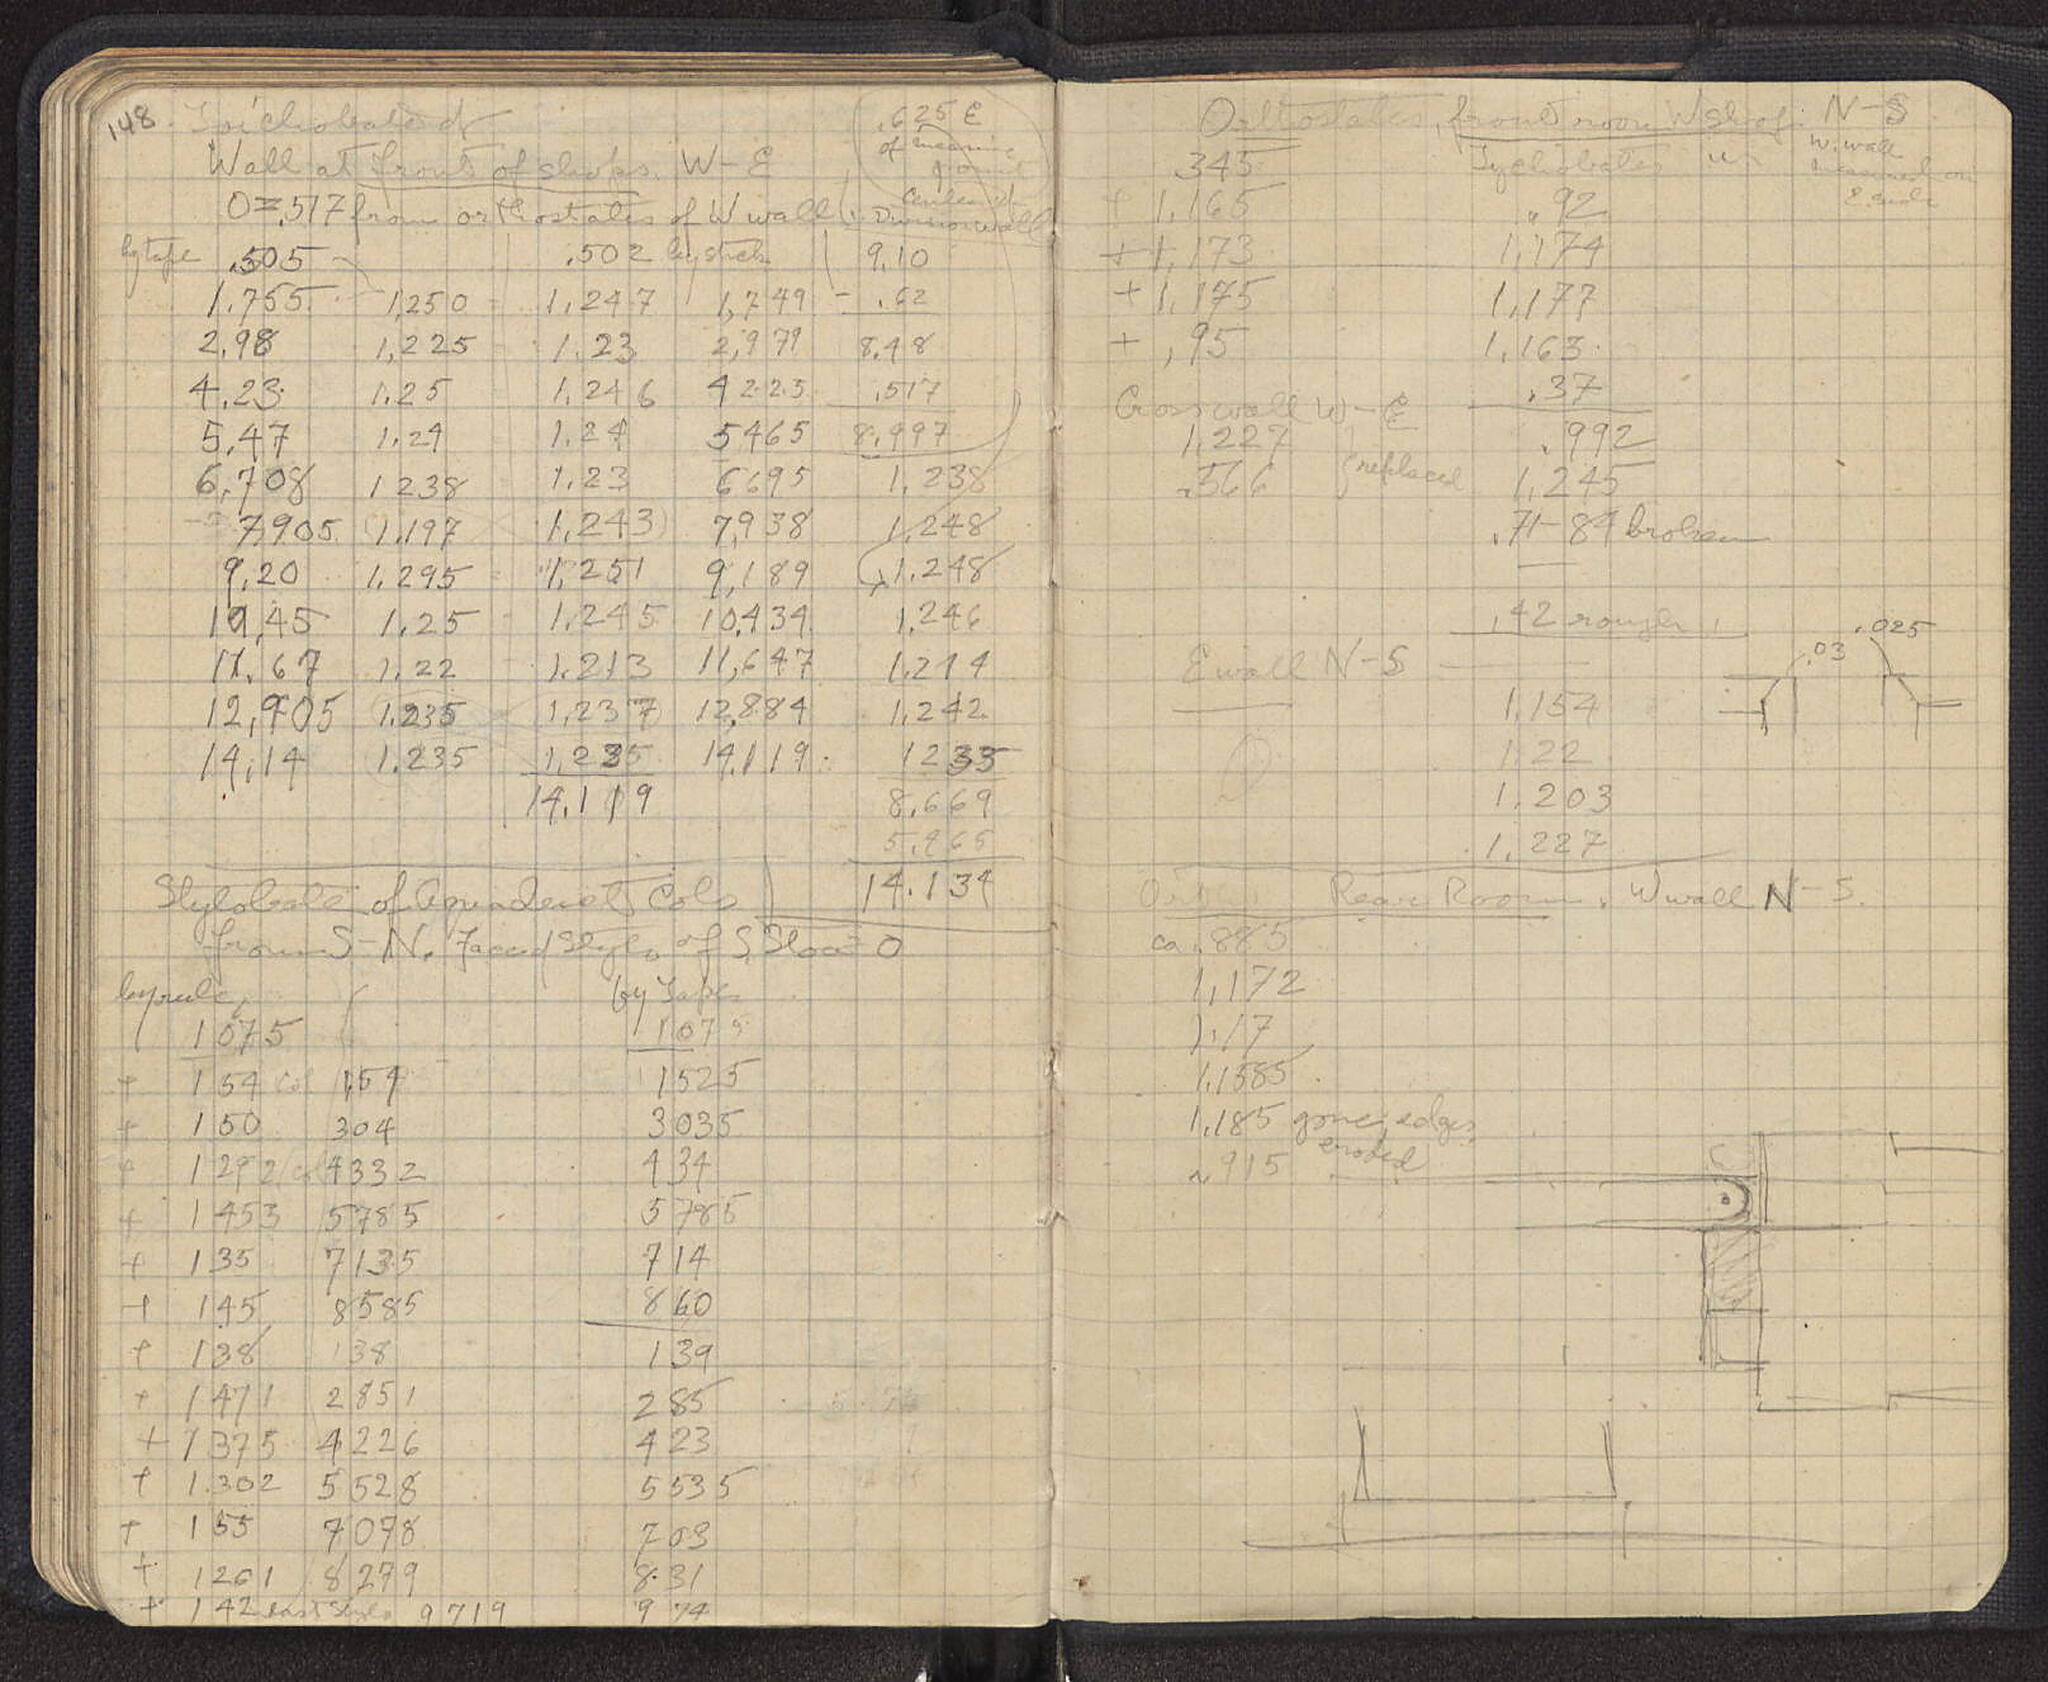 148. Toichobate of
Wall at front of shops. W-E
.625 E
of meaning
point
O = .517 from orthostates of W wall
Center of
Division wall
by tape .505 .502 by stick 9.10
1.755 - 1,250 1,247 1,749 - .62
2,98 1,225 1.23 2,979 8.48
4.23 1.25 1,246 4225 .517
5,47 1.24 1.24 5465 8.997
6,708 1238 1.23 6695 1,238
7,905 (1.197 1,243) 7,938 1,248
9,20 1.295 1,251 9,189 1.248
10,45 1.25 1.245 10,434 1,246
11.67 1.22 1.213 11,647 1.214
12,905 1.235 1,237 12,884 1,242
14,14 1.235 1,235 14,119 1235
14.119 8,669
5,465
14.134
Stylobate of Cols
from S-N. Face of Stylo of S Stoa = O
by rule by Tape
1075 1075
+ 154 col 1,54 1525
+ 150 304 3035
+ 1292 (col 4332 434
+ 1453 5785 5785
+ 135 7135 714
+ 145 8585 860
+ 138 138 139
+ 1471 2851 285
+ 1375 4226 423
+ 1.302 5528 5535
+ 155 7078 703
+ 1201 8279 8.31
+ 142 last stylo 9719 974
Orthostates, front room W shop. N-S
W. wall
measured on
E. side
345 Toichobates
+ 1,165 .92
+ 1,173 1,174
+ 1,175 1,177
+ ,95 1,163.
.37
Cross wall W-E
1,227 .992
.566 replaced 1,245
.71-84 broken
.42 rough
E wall N-S
.03 .025
1,154
1.22
1.203
1,227
Rear Room. W wall N-S.
ca .885
1,172
1.17
1,1585
1,185 gone, edges
eroded
~915